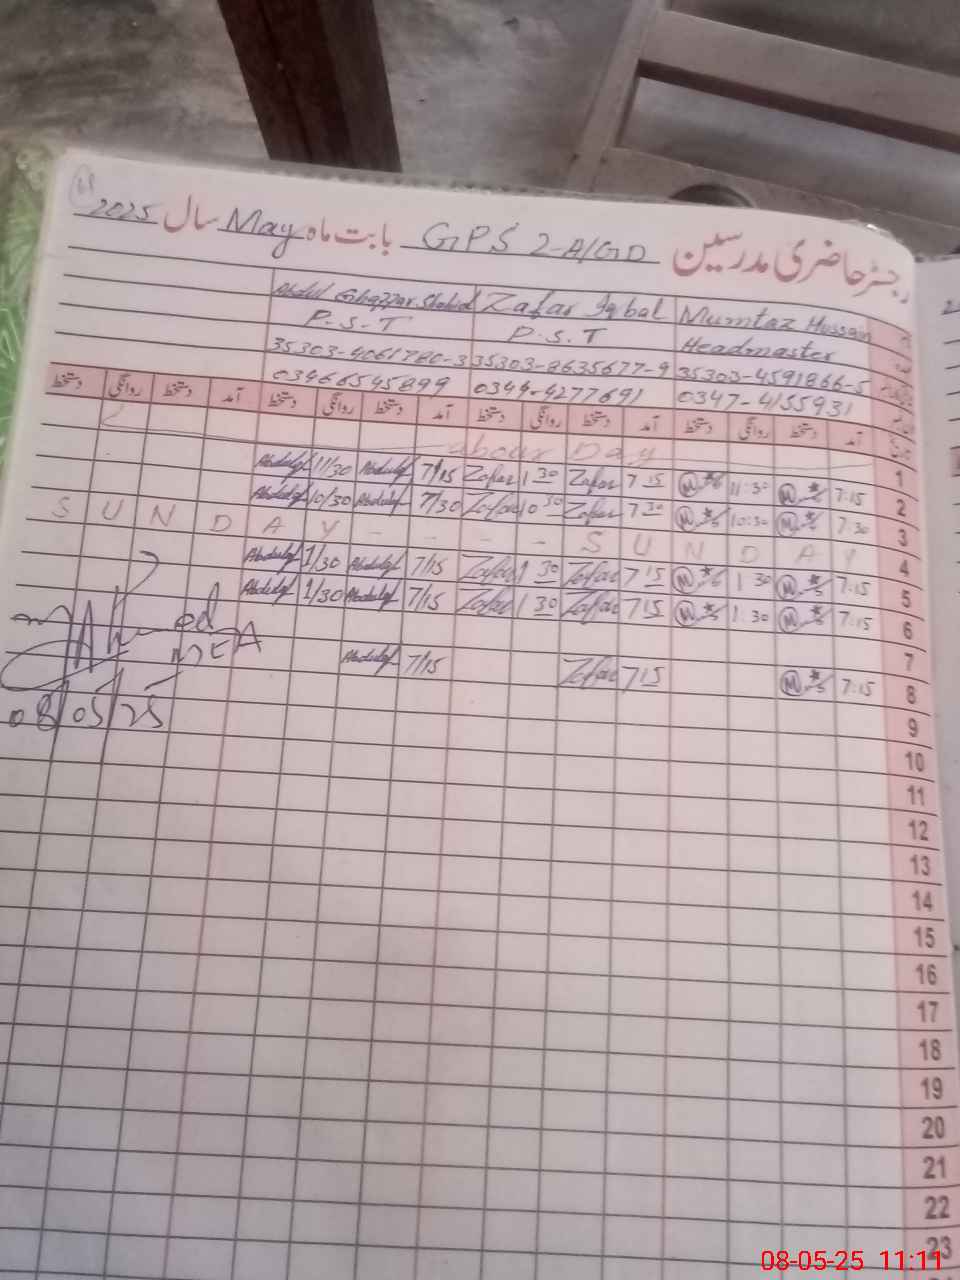 رجسٹر حاضری مدرسین GPS 2-A/GD بابت ماہ May سال 2025
Mumtaz Hussain Zafar Iqbal Abdul Ghaffar Shahid
Headmaster P.S.T P.S.T
35303-4591866-5 35303-8635677-9 35303-4061780-3
0347-4155931 0344-4277691 03466545899
آمد دستخط روانگی دستخط آمد دستخط روانگی دستخط آمد دستخط روانگی دستخط آمد دستخط روانگی دستخط
1 Labour Day
2 7:15 M 11:30 M 7 15 Zafar 1 30 Zafar 7/15 Abdulgf 11/30 Abdulgf
3 7:30 M 10:30 M 7 30 Zafar 10 30 Zafar 7/30 Abdulgf 10/30 Abdulgf
4 SUNDAY - - - - SUNDAY
5 7:15 M 1 30 M 7 15 Zafar 1 30 Zafar 7/15 Abdulgf 1/30 Abdulgf
6 7:15 M 1:30 M 7 15 Zafar 1 30 Zafar 7/15 Abdulgf 1/30 Abdulgf
7
8 7:15 M 7 15 Zafar 7/15 Abdulgf
Ahmed
MEA
08/05/25
9
10
11
12
13
14
15
16
17
18
19
20
21
22
23
08-05-25 11:11